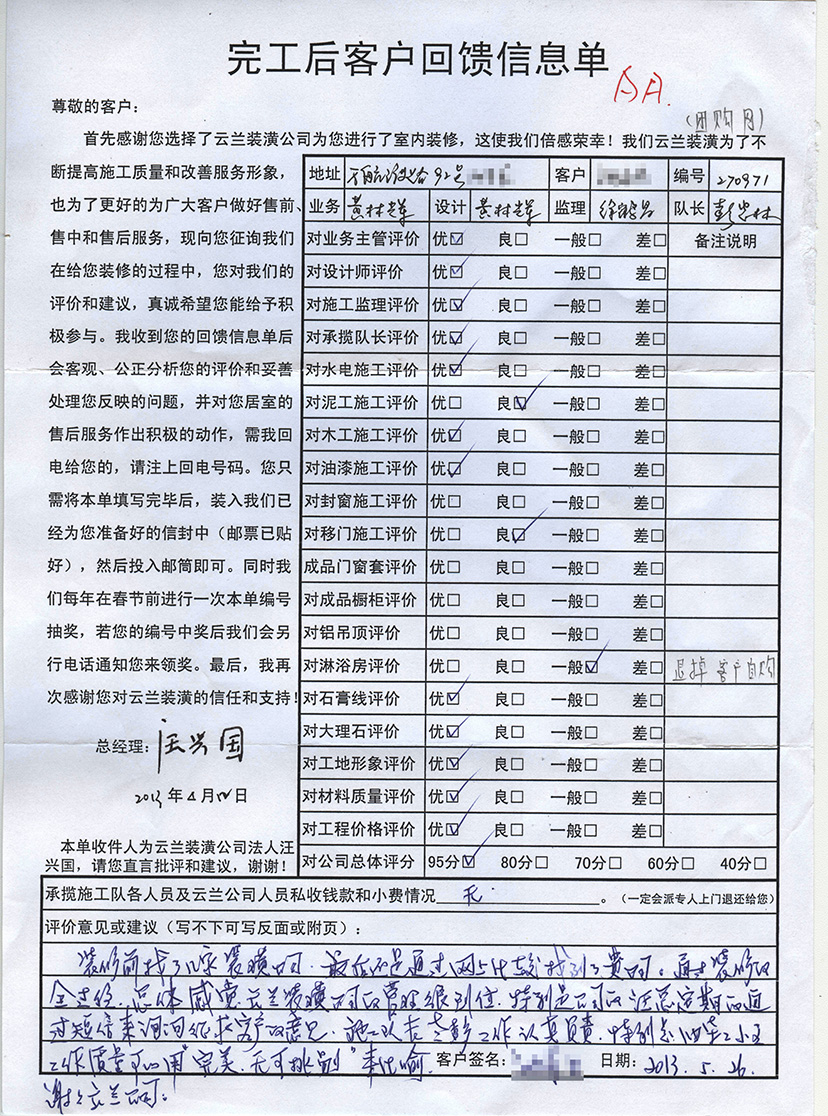 完工后客户回馈信息单
AA.
(团购网)
尊敬的客户：
首先感谢您选择了云兰装潢公司为您进行了室内装修，这使我们倍感荣幸！我们云兰装潢为了不
断提高施工质量和改善服务形象，
也为了更好的为广大客户做好售前、
售中和售后服务，现向您征询我们
在给您装修的过程中，您对我们的
评价和建议，真诚希望您能给予积
极参与。我收到您的回馈信息单后
会客观、公正分析您的评价和妥善
处理您反映的问题，并对您居室的
售后服务作出积极的动作，需我回
电给您的，请注上回电号码。您只
需将本单填写完毕后，装入我们已
经为您准备好的信封中（邮票已贴
好），然后投入邮筒即可。同时我
们每年在春节前进行一次本单编号
抽奖，若您的编号中奖后我们会另
行电话通知您来领奖。最后，我再
次感谢您对云兰装潢的信任和支持！
总经理：汪兴国
2013年4月 日
本单收件人为云兰装潢公司法人汪
兴国，请您直言批评和建议，谢谢！
地址 92号 客户 编号 270971
业务 黄林 设计 黄林 监理 徐 队长 彭 林
对业务主管评价 优☑ 良□ 一般□ 差□ 备注说明
对设计师评价 优☑ 良□ 一般□ 差□
对施工监理评价 优☑ 良□ 一般□ 差□
对承揽队长评价 优☑ 良□ 一般□ 差□
对水电施工评价 优☑ 良□ 一般□ 差□
对泥工施工评价 优□ 良☑ 一般□ 差□
对木工施工评价 优☑ 良□ 一般□ 差□
对油漆施工评价 优☑ 良□ 一般□ 差□
对封窗施工评价 优□ 良□ 一般□ 差□
对移门施工评价 优□ 良☑ 一般□ 差□
成品门窗套评价 优□ 良□ 一般□ 差□
对成品橱柜评价 优□ 良□ 一般□ 差□
对铝吊顶评价 优□ 良□ 一般□ 差□
对淋浴房评价 优□ 良□ 一般☑ 差□ 退掉 客户自购
对石膏线评价 优☑ 良□ 一般□ 差□
对大理石评价 优☑ 良□ 一般□ 差□
对工地形象评价 优☑ 良□ 一般□ 差□
对材料质量评价 优☑ 良□ 一般□ 差□
对工程价格评价 优☑ 良□ 一般□ 差□
对公司总体评分 95分☑ 80分□ 70分□ 60分□ 40分□
承揽施工队各人员及云兰公司人员私收钱款和小费情况 无 。（一定会派专人上门退还给您）
评价意见或建议（写不下可写反面或附页）：
装修前找了几家装璜公司，最后还是通过网上比较找到了贵司。通过装修的
全过程，总体感觉云兰装璜公司的管理很到位，特别是公司的汪总定期的通
过短信来询问征求客户的意见，施工队长 工作认真负责，特别 工
工作质量可以用"完美、无可挑剔"来比喻。 客户签名： 日期：2013.5.26.
谢谢云兰公司！